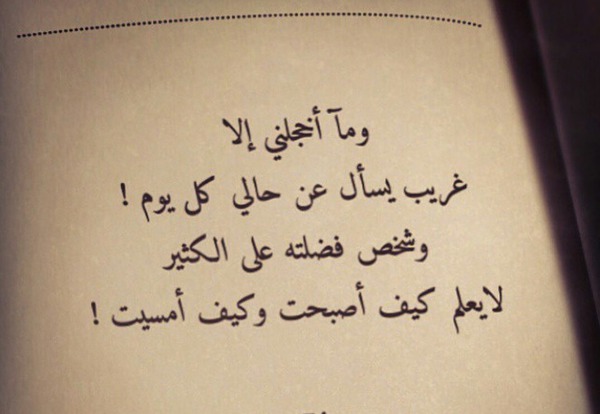 ومآ أخجلني إلا
غريب يسأل عن حالي كل يوم !
وشخص فضلته على الكثير
لايعلم كيف أصبحت وكيف أمسيت !